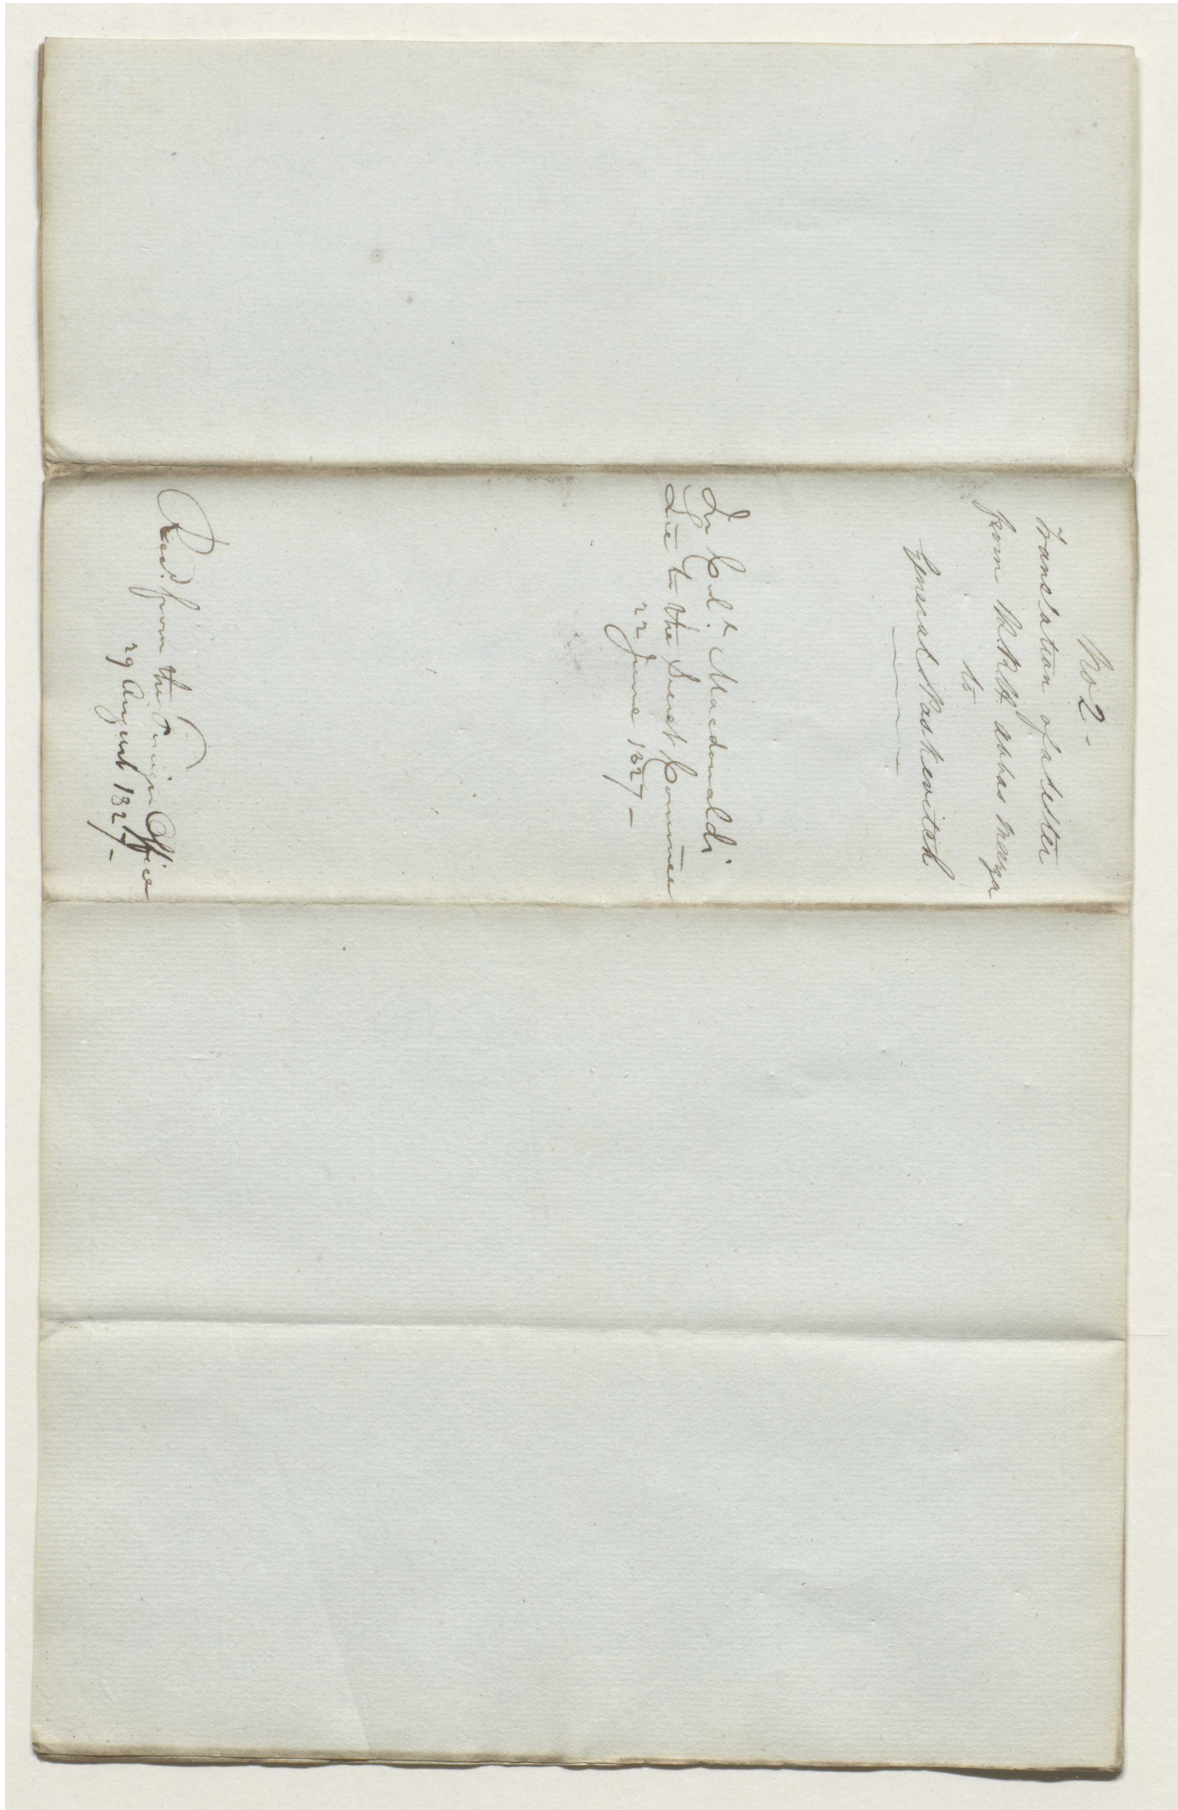 No 2 -
Translation of a Letter
from H.R.H. abbas mirza
to
General Paskevitch
In Col. Macdonald's
Lre to the Secret Commee
22 June 1827 -
Recd. from the Foreign Office
29 August 1827 -